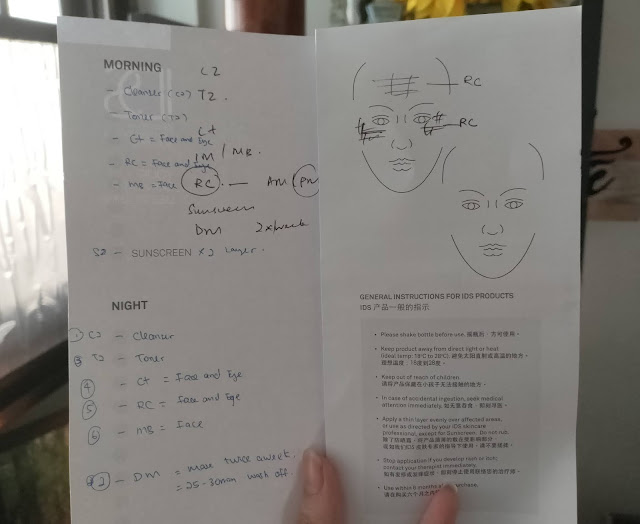 MORNING
C2
- Cleanser (C2) T2.
- Toner (T2)
C+
- C+ = Face and Eye
IM / MB.
- RC = Face and Eye
- MB = Face RC - AM PM
Sunscreen
DM 2x/week
S2 - SUNSCREEN x 2 layer.
NIGHT
① C2 - Cleanser
③ T2 - Toner
④ - C+ = Face and Eye
⑤ - RC = Face and Eye
⑥ - MB = Face
② - DM = mask twice a week.
= 25-30min wash off.
RC
RC
GENERAL INSTRUCTIONS FOR IDS PRODUCTS
IDS 产品一般的指示
• Please shake bottle before use.
• Keep product away from direct light or heat
(ideal temp: 18°C to 28°C).
• Keep out of reach of children.
• In case of accidental ingestion, seek medical
attention immediately.
• Apply a thin layer evenly over affected areas,
or use as directed by your IDS skincare
professional, except for Sunscreen. Do not rub.
• Stop application if you develop rash or itch;
contact your therapist immediately.
• Use within 6 months